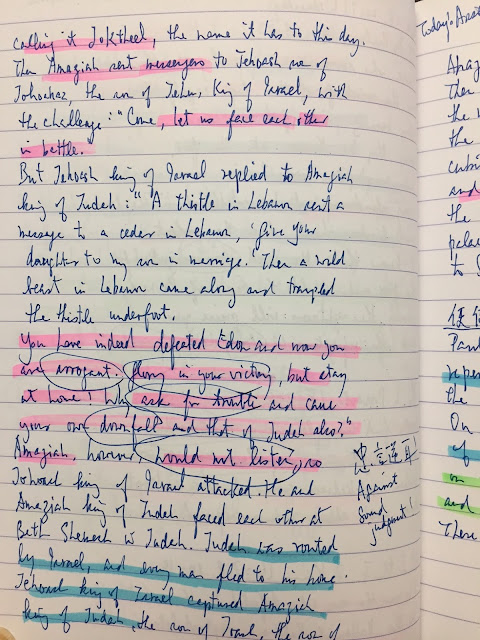 calling it Joktheel, the name it has to this day.
Then Amaziah sent messengers to Jehoash son of
Jehoahaz, the son of Jehu, King of Israel, with
the challenge: "Come, let us face each other
in battle."
But Jehoash king of Israel replied to Amaziah
king of Judah: "A thistle in Lebanon sent a
message to a cedar in Lebanon, 'Give your
daughter to my son in marriage.' Then a wild
beast in Lebanon came along and trampled
the thistle underfoot.
You have indeed defeated Edom and now you
are arrogant. Glory in your victory, but stay
at home! Why ask for trouble and cause
your own downfall and that of Judah also?"
Amaziah, however, would not listen, so
Jehoash king of Israel attacked. He and
Amaziah king of Judah faced each other at
Beth Shemesh in Judah. Judah was routed
by Israel, and every man fled to his home.
Jehoash king of Israel captured Amaziah
king of Judah, the son of Joash, the son of
忠言逆耳
Against
sound
judgment!
Today:
Then
the
the
and
the
to
the
On
of
on
and
There